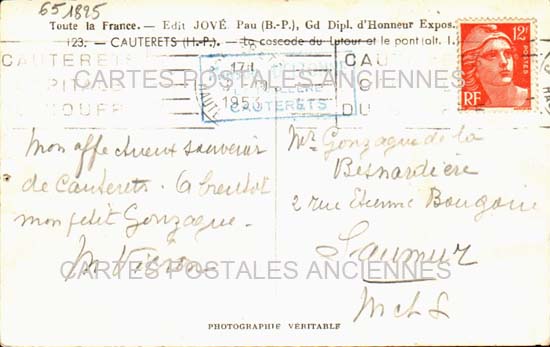 651895
Toute la France. — Edit JOVÉ Pau (B.-P.), Gd Dipl. d'Honneur Expos.
123. — CAUTERETS (H.-P.). — La cascade du Lutour et le pont (alt. 1.
CAUTERETS
CAUTERETS
1953
12F
POSTES
RF
CARTES POSTALES ANCIENNES
Mon affectueux souvenir
de Cauterets. A bientôt
mon petit Gonzague.
Mr Gonzague de la
Besnardière
2 rue Etienne Bougouin
Saumur
M et L
CARTES POSTALES ANCIENNES
PHOTOGRAPHIE VÉRITABLE